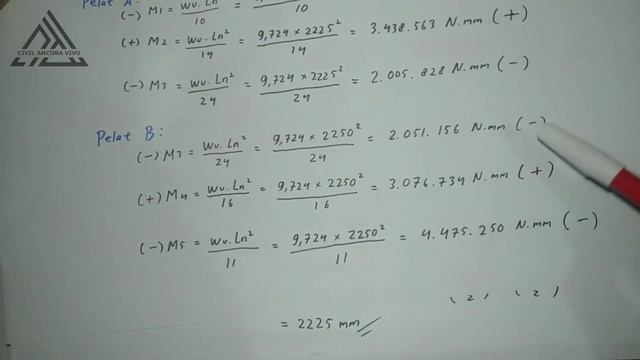 CIVIL ANCORA VIVO
Pelat A:
(-) M1 = Wu.Ln² / 10 = / 10
(+) M2 = Wu.Ln² / 14 = 9,724 x 2225² / 14 = 3.438.563 N.mm (+)
(-) M3 = Wu.Ln² / 24 = 9,724 x 2225² / 24 = 2.005.828 N.mm (-)
Pelat B:
(-) M3 = Wu.Ln² / 24 = 9,724 x 2250² / 24 = 2.051.156 N.mm (-)
(+) M4 = Wu.Ln² / 16 = 9,724 x 2250² / 16 = 3.076.734 N.mm (+)
(-) M5 = Wu.Ln² / 11 = 9,724 x 2250² / 11 = 4.475.250 N.mm (-)
= 2225 mm